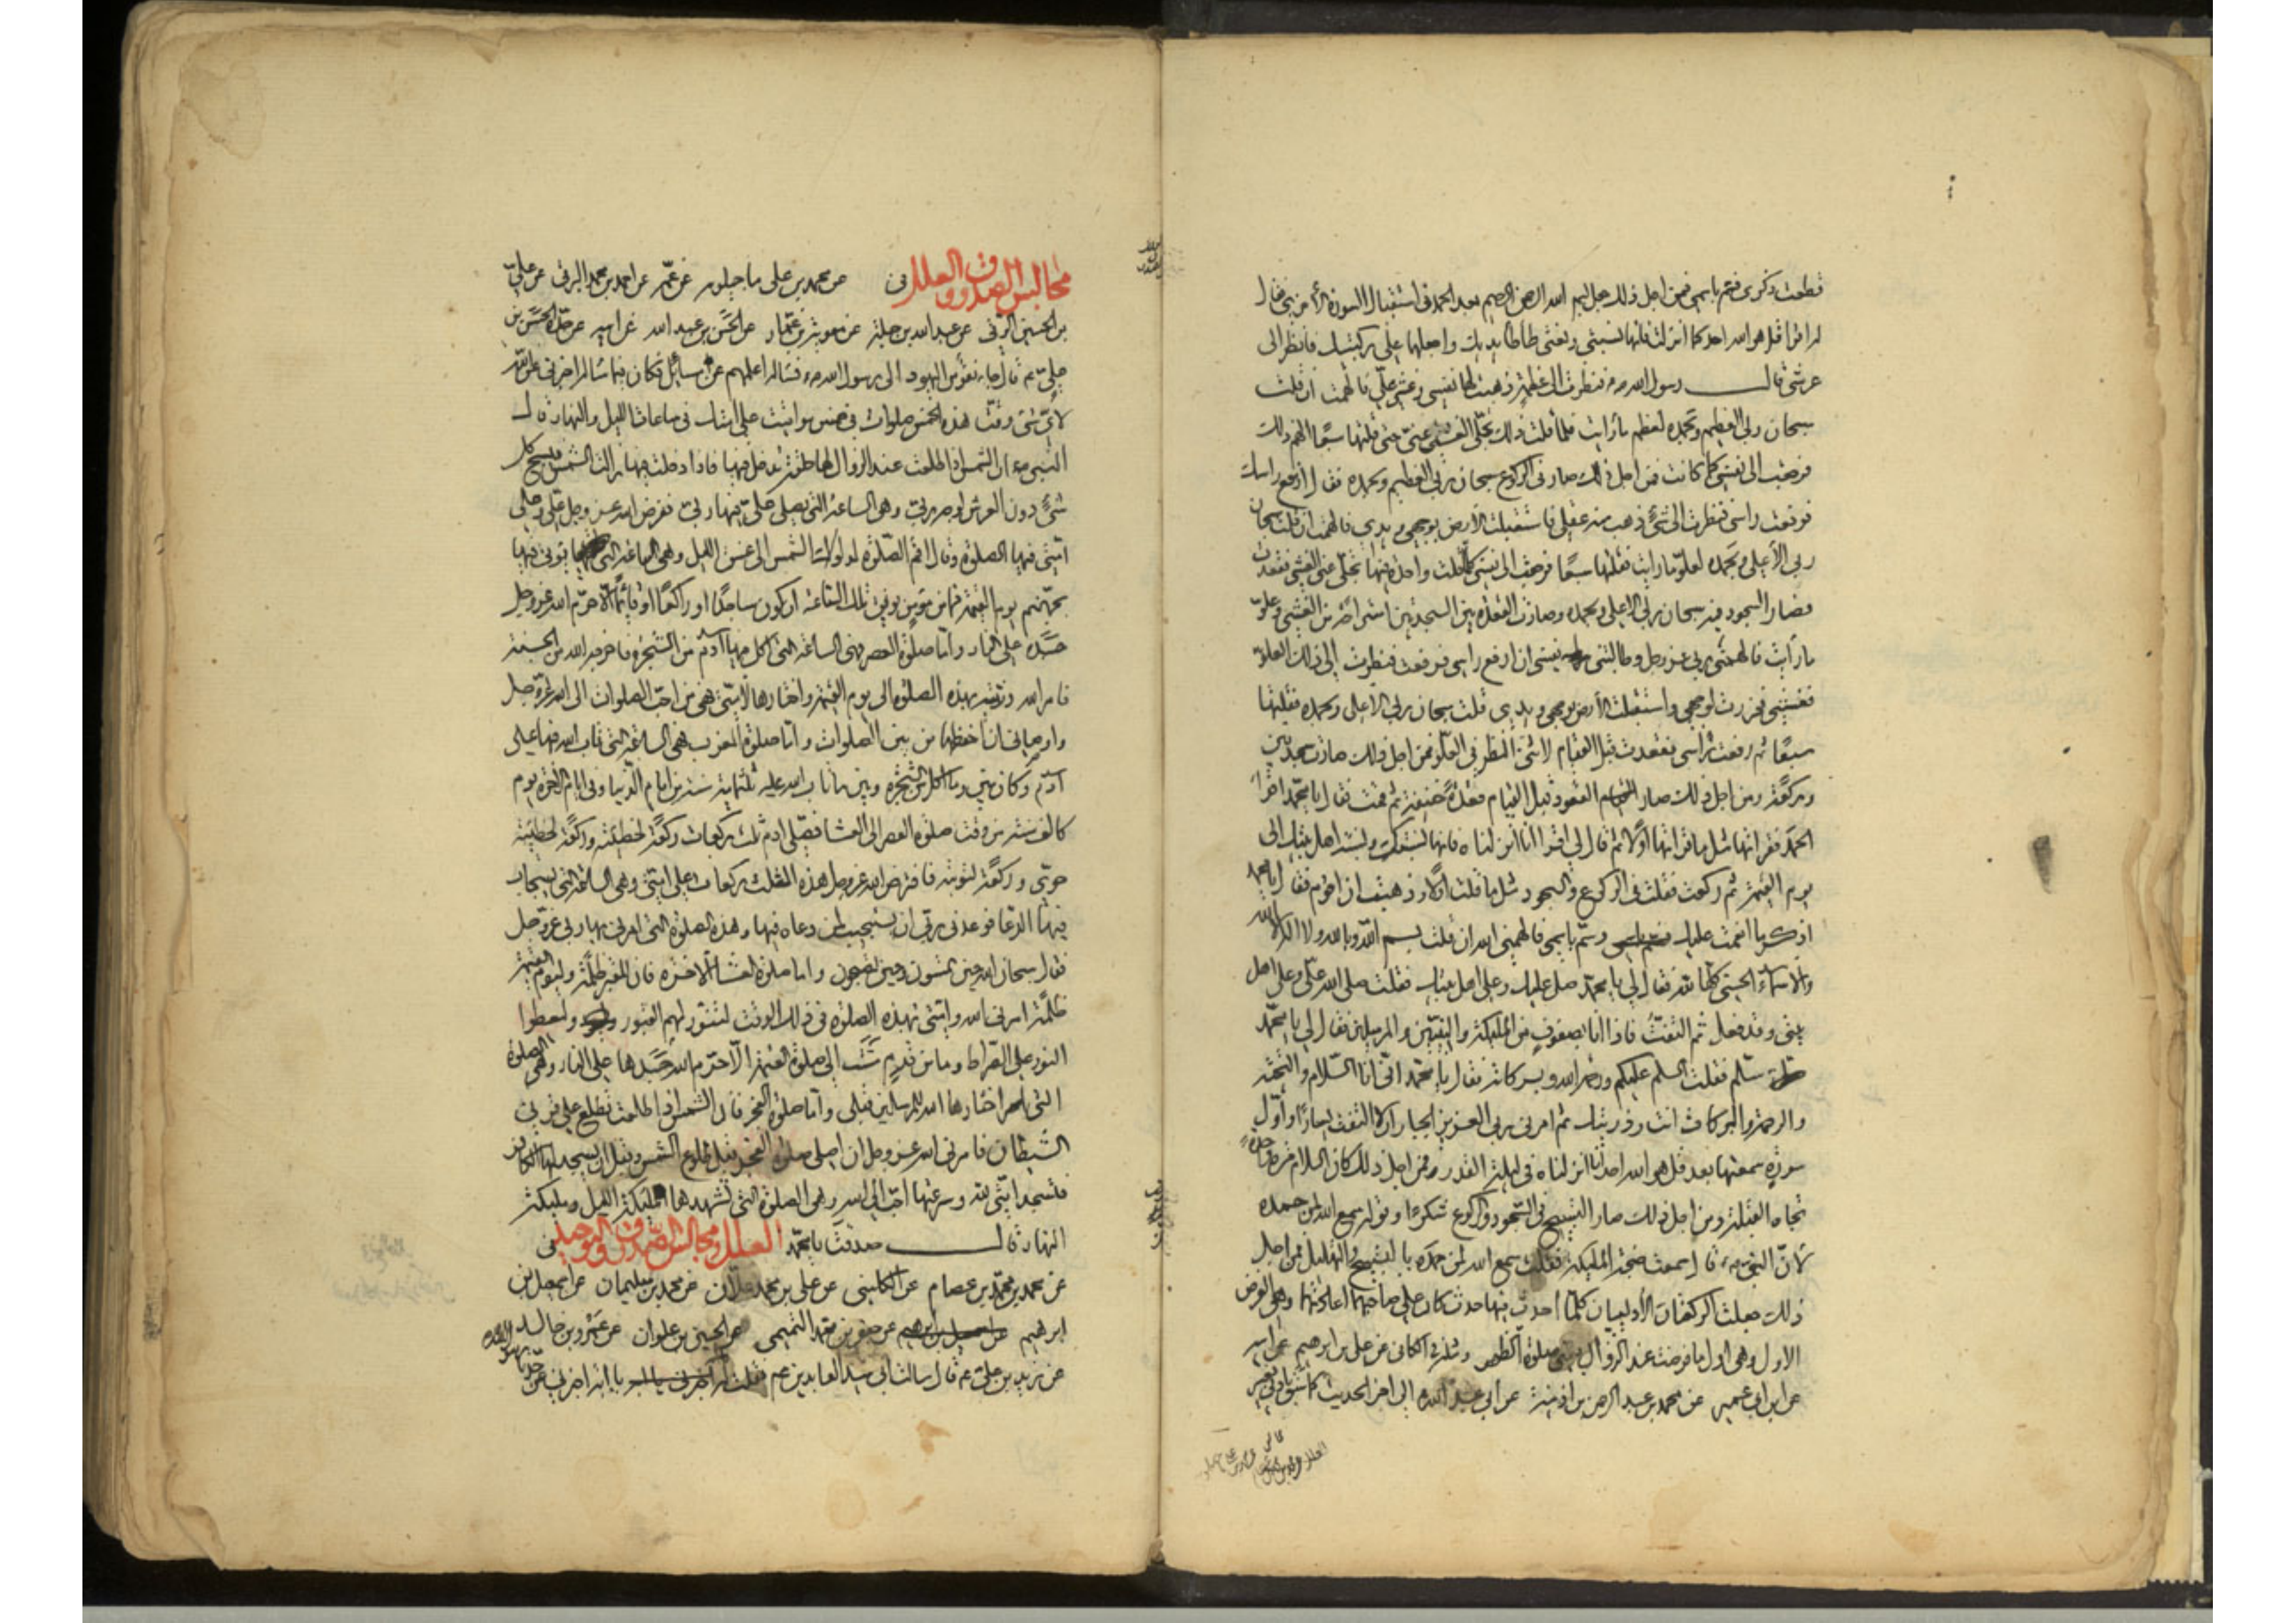 قطعت ذكرى فسم باسمى فمن اجل ذلك جعل بسم الله الرحمن الرحيم بعد الحمد فى استقبال السورة الاخرى فقال
له اقرا قل هو الله احد كما انزلت فانها نسبتى ونعتى طأطأ يديك واجعلها على ركبتيك فانظر الى
عرشى قال رسول الله ص فنظرت الى عظمة ذهبت لها نفسى وغشى على فالهمت ان قلت
سبحان ربى العظيم وبحمده لعظم ما رايت فلما قلت ذلك تجلى الغشى عنى حتى قلتها سبعا الهم ذلك
فرجعت الى نفسى كما كانت فمن اجل ذلك صار فى الركوع سبحان ربى العظيم وبحمده فقال ارفع راسك
فرفعت راسى فنظرت الى شئ ذهب منه عقلى فاستقبلت الارض بوجهى ويدى فالهمت ان قلت سبحان
ربى الاعلى وبحمده لعلو ما رايت فقلتها سبعا فرجعت الى نفسى كلما قلت واحدة فيها تجلى عنى الغشى فقعدت
فصار السجود فيه سبحان ربى الاعلى وبحمده وصارت القعدة بين السجدتين استراحة من الغشى وعلو
ما رايت فالهمنى ربى عز وجل وطالبتنى نفسى ان ارفع راسى فرفعت فنظرت الى ذلك العلو
فغشى فخررت لوجهى واستقبلت الارض بوجهى ويدى قلت سبحان ربى الاعلى وبحمده فقلتها
سبعا ثم رفعت راسى فقعدت قبل القيام لاثنى النظر فى العلو فمن اجل ذلك صارت سجدتين
وركعة ومن اجل ذلك صار القعود قبل القيام قعدة خفيفة ثم قمت فقال يا محمد اقرا
الحمد فقراتها مثل ما قراتها اولا ثم قال لى اقرا انا انزلناه فانها نسبتك ونسبة اهل بيتك الى
يوم القيمة ثم ركعت فقلت فى الركوع والسجود مثل ما قلت اولا وذهبت ان اقوم فقال يا محمد
اذكر ما انعمت عليك وسم باسمى فالهمنى الله ان قلت بسم الله وبالله ولا اله الا الله
والاسماء الحسنى كلها لله فقال لى يا محمد صل عليك وعلى اهل بيتك فقلت صلى الله على وعلى اهل
بيتى وقد فعل ثم التفت فاذا انا بصفوف من الملئكة والنبيين والمرسلين فقال لى يا محمد
سلم فقلت السلم عليكم ورحمة الله وبركاته فقال يا محمد انى انا السلام والتحية
والرحمة والبركات انت وذريتك ثم امرنى ربى العزيز الجبار ان لا التفت يسارا واول
سورة سمعتها بعد قل هو الله احد انا انزلناه فى ليلة القدر فمن اجل ذلك كان السلام مرة واحدة
تجاه القبلة ومن اجل ذلك صار التسبيح فى السجود والركوع شكرا وقوله سمع الله لمن حمده
لان النبى ص قال سمعت ضجة الملئكة فقلت سمع الله لمن حمده بالتسبيح والتهليل فمن اجل
ذلك جعلت الركعتان الاوليان كلما احدث فيها حدث كان على صاحبها اعادتها وهى الفرض
الاول وهى اول ما فرضت عند الزوال يعنى صلوة الظهر ومثله فى الكافى عن على بن ابرهيم عن ابيه
عن ابن ابى عمير عن محمد بن عبد الرحمن بن اذينة عن ابى عبد الله الى اخر الحديث كما سبق بادنى تغيير
مجالس الصدوق والعلل فى عن محمد بن على ماجيلويه عن عمه عن احمد بن محمد البرقى عن على
بن الحسين البرقى عن عبد الله بن جبلة عن معوية بن عمار عن الحسن بن عبد الله عن ابيه عن جده الحسن بن
على ع قال جاء نفر من اليهود الى رسول الله ص فساله اعلمهم عن مسائل فكان فيما ساله اخبرنى عن الله
لاى شئ وقت هذه الخمس صلوات فى خمس مواقيت على امتك فى ساعات الليل والنهار قال
النبى ص ان الشمس اذا طلعت عند الزوال لها حلقة تدخل فيها فاذا دخلت فيها زالت الشمس فيسبح كل
شئ دون العرش لوجه ربى وهى الساعة التى يصلى على فيها ربى ففرض الله عز وجل على وعلى
امتى فيها الصلوة وقال اقم الصلوة لدلوك الشمس الى غسق الليل وهى الساعة التى يوتى فيها
بجهنم يوم القيمة فما من مؤمن يوفق تلك الساعة ان يكون ساجدا او راكعا او قائما الا حرم الله عز وجل
جسده على النار واما صلوة العصر فهى الساعة التى اكل فيها آدم من الشجرة فاخرجه الله من الجنة
فامر الله ذريته بهذه الصلوة الى يوم القيمة واختارها لامتى فهى من احب الصلوات الى الله عز وجل
واوصانى ان احفظها من بين الصلوات واما صلوة المغرب فهى الساعة التى تاب الله فيها على
آدم وكان بين ما اكل من الشجرة وبين ما تاب الله عليه ثلثمائة سنة من ايام الدنيا وفى ايام الاخرة يوم
كالف سنة من وقت صلوة العصر الى العشا فصلى ادم ثلث ركعات ركعة لخطيئته وركعة لخطيئة
حوى وركعة لتوبته فافترض الله عز وجل هذه الثلث ركعات على امتى وهى الساعة التى يستجاب
فيها الدعا فوعدنى ربى ان يستجيب لمن دعاه فيها وهذه الصلوة التى امرنى بها ربى عز وجل
فقال سبحان الله حين تمسون وحين تصبحون واما صلوة العشا الاخرة فان للقبر ظلمة وليوم القيمة
ظلمة امرنى الله وامتى بهذه الصلوة فى ذلك الوقت لتنور لهم القبور وليعطوا
النور على الصراط وما من قدم مشت الى صلوة العتمة الا حرم الله جسدها على النار وهى الصلوة
التى اختارها الله للمرسلين قبلى واما صلوة الفجر فان الشمس اذا طلعت تطلع على قرنى
الشيطان فامرنى الله عز وجل ان اصلى صلوة الفجر قبل طلوع الشمس وقبل ان يسجد لها الكافر
فتسجد امتى لله وسرعتها احب الى الله وهى الصلوة التى تشهدها ملئكة الليل وملئكة
النهار قال صدقت يا محمد العلل ومجالس الصدوق والتوحيد فى
عن محمد بن محمد بن عصام عن الكلينى عن على بن محمد علان عن محمد بن سليمان عن اسمعيل بن
ابرهيم عن جعفر بن محمد التميمى عن الحسين بن علوان عن عمرو بن خالد
عن زيد بن على ع قال سالت ابى سيد العابدين ع فقلت له يا ابة اخبرنى عن جدنا رسول الله